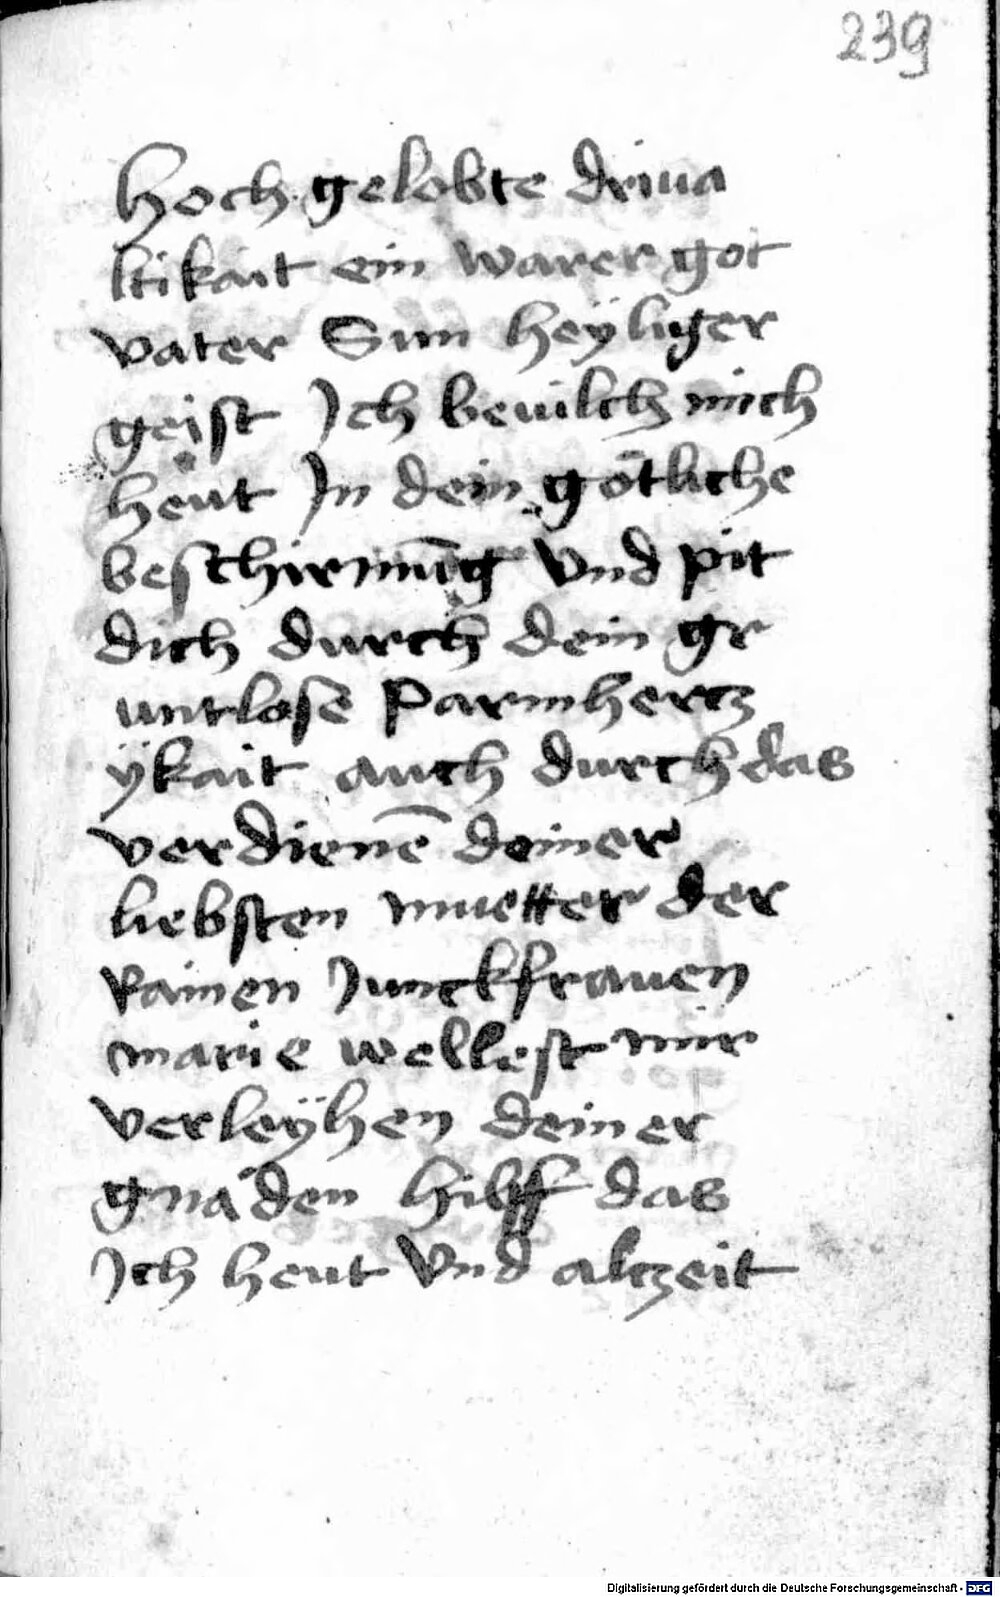 239
Hoch gelobte driua
ltikait ein warer got
vater Sun heÿliger
geist Jch beuilch mich
heut Jn dein götliche
beschirmūg vnd pit
dich durch dein gr
untlose parmhercz
ÿkait auch durch das
verdienē deiner
liebsten muetter der
Rainen Junckfrauen
marie wellest mir
verleÿhen deiner
gnaden hilff das
Jch heut vnd alczeit
Digitalisierung gefördert durch die Deutsche Forschungsgemeinschaft - DFG